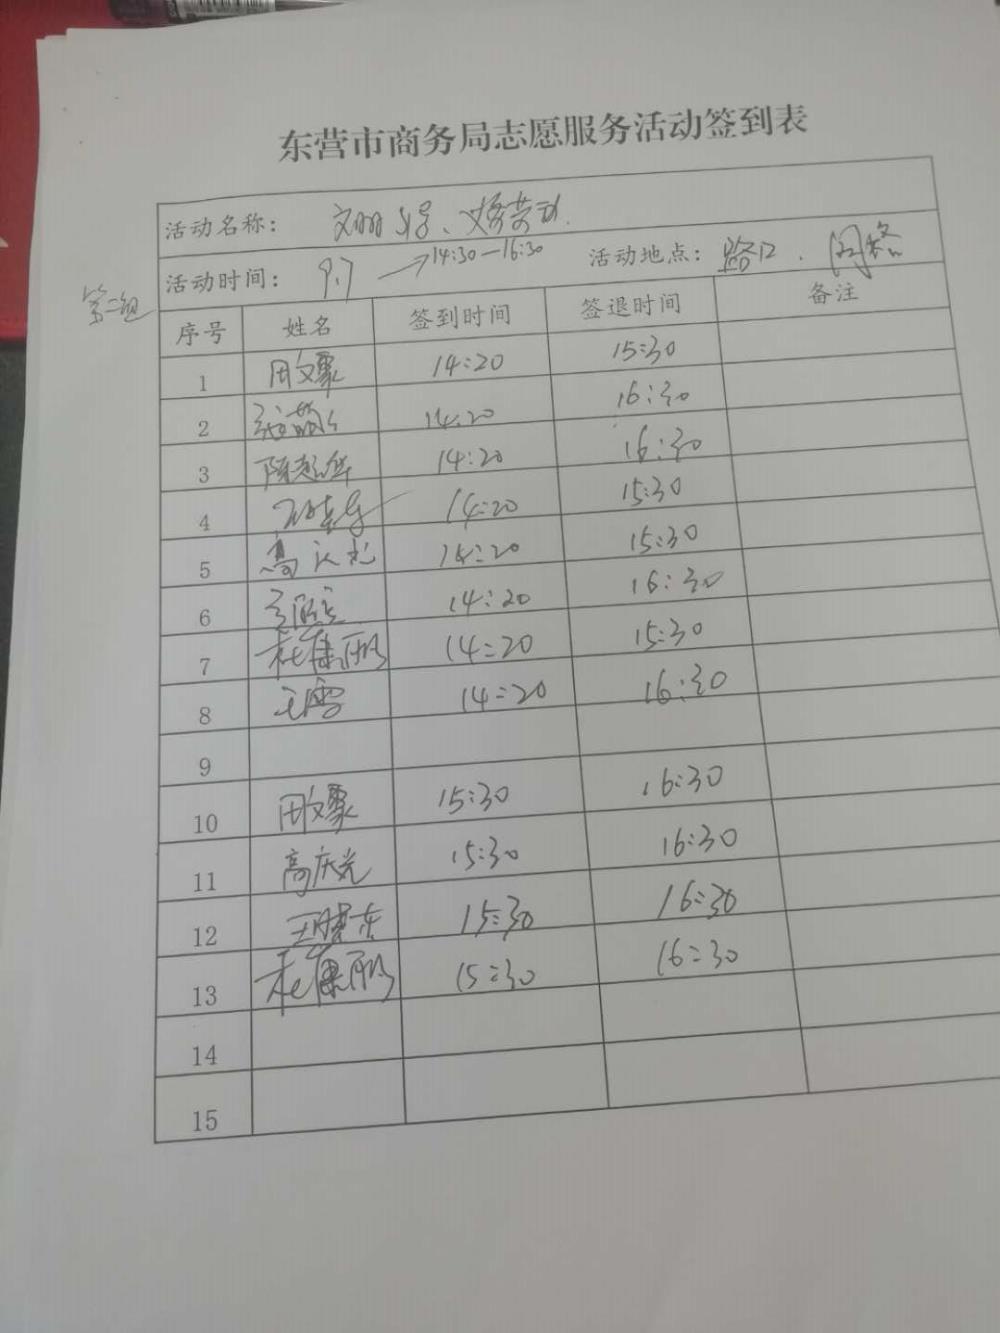 东营市商务局志愿服务活动签到表
活动名称：文明
活动时间：9.7 14:30—16:30 活动地点：路口、网格
第二组
序号 姓名 签到时间 签退时间 备注
1 田文 14:20 15:30
2 14:20 16:30
3 陈 14:20 16:30
4 14:20 15:30
5 高 14:20 15:30
6 14:20 16:30
7 杜 14:20 15:30
8 王雪 14:20 16:30
9
10 田文 15:30 16:30
11 高庆光 15:30 16:30
12 王 15:30 16:30
13 杜 15:30 16:30
14
15